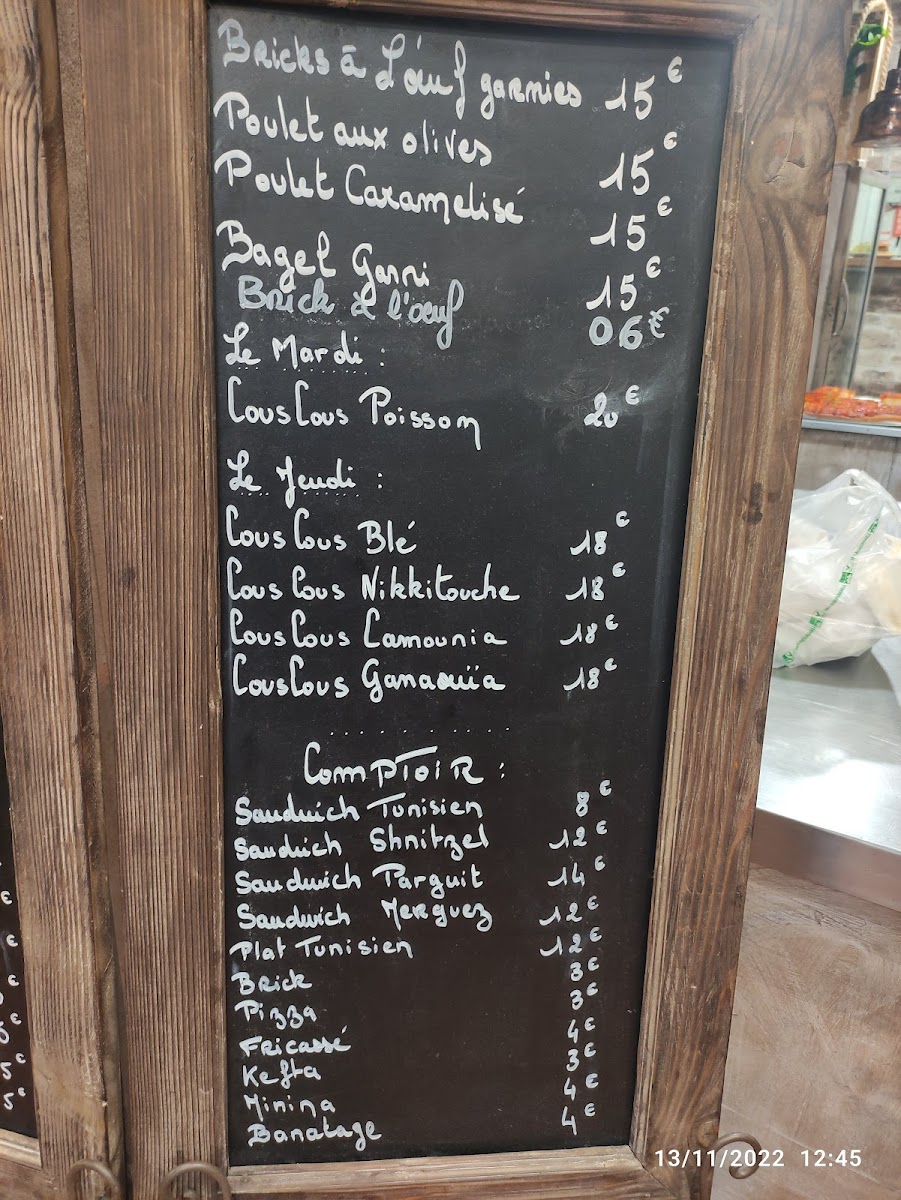 Bricks à L'œuf garnies 15€
Poulet aux olives 15€
Poulet Caramelisé 15€
Bagel Garni 15€
Brick à l'œuf 06€
Le Mardi :
CousCous Poisson 20€
Le Jeudi :
CousCous Blé 18€
CousCous Nikkitouche 18€
CousCous Camounia 18€
CousCous Ganaouïa 18€
Comptoir :
Sandwich Tunisien 8€
Sandwich Shnitzel 12€
Sandwich Parguit 14€
Sandwich Merguez 12€
Plat Tunisien 12€
Brick 3€
Pizza 3€
Fricassé 4€
Kefta 3€
Minina 4€
Banatage 4€
13/11/2022 12:45